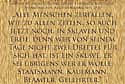 ALLE MENSCHEN ZERFALLEN,
WIE ZU ALLEN ZEITEN, SO AUCH
JETZT NOCH, IN SKLAVEN UND
FREIE; DENN WER VON SEINEM
TAGE NICHT ZWEI DRITTEL FÜR
SICH HAT, IST EIN SKLAVE, ER
SEI ÜBRIGENS WER ER WOLLE:
STAATSMANN, KAUFMANN,
BEAMTER, GELEHRTER.